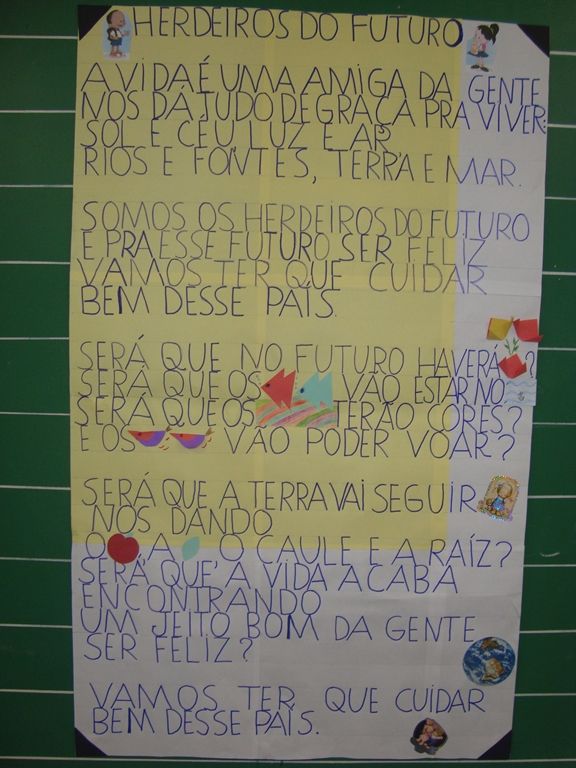 HERDEIROS DO FUTURO
A VIDA É UMA AMIGA DA GENTE
NOS DÁ TUDO DE GRAÇA PRA VIVER:
SOL E CÉU, LUZ E AR
RIOS E FONTES, TERRA E MAR.
SOMOS OS HERDEIROS DO FUTURO
E PRA ESSE FUTURO SER FELIZ
VAMOS TER QUE CUIDAR
BEM DESSE PAÍS.
SERÁ QUE NO FUTURO HAVERÁ ?
SERÁ QUE OS VÃO ESTAR NO
SERÁ QUE OS TERÃO CORES?
E OS VÃO PODER VOAR?
SERÁ QUE A TERRA VAI SEGUIR
NOS DANDO
O , A O CAULE E A RAÍZ?
SERÁ QUE A VIDA ACABA
ENCONTRANDO
UM JEITO BOM DA GENTE
SER FELIZ?
VAMOS TER QUE CUIDAR
BEM DESSE PAÍS.